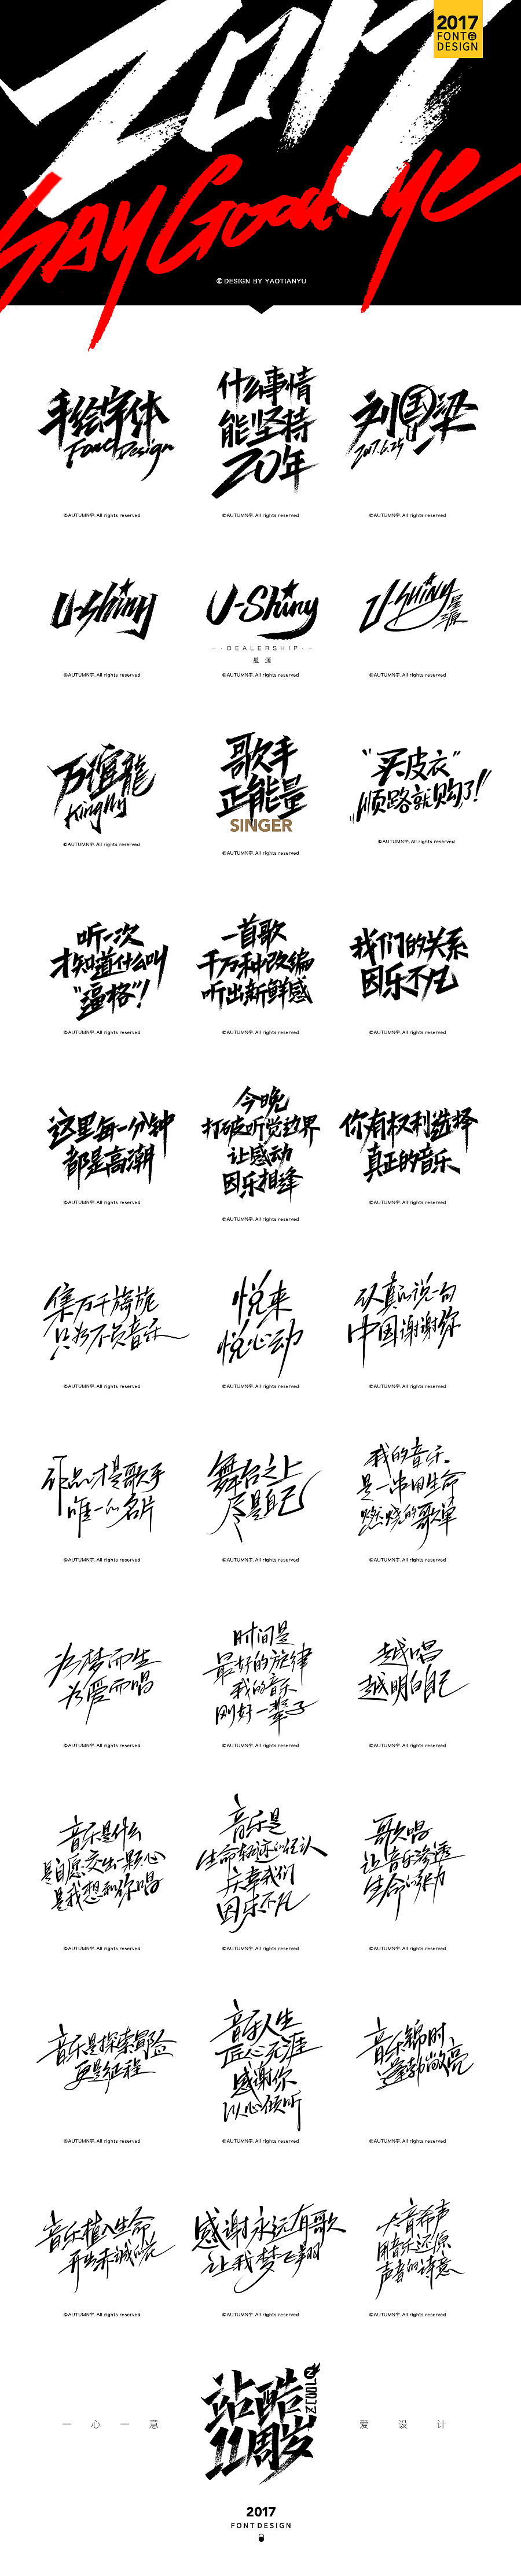 2017
FONT
DESIGN
2017
SAY Goodbye
DESIGN BY YAOTIANYU
手绘字体
Font Design
©AUTUMN宇. All rights reserved
什么事情
能坚持
20年
©AUTUMN宇. All rights reserved
刘国梁
2017.6.25
©AUTUMN宇. All rights reserved
U-Shiny
©AUTUMN宇. All rights reserved
U-Shiny
DEALERSHIP
星源
©AUTUMN宇. All rights reserved
U-Shiny
星源
©AUTUMN宇. All rights reserved
©AUTUMN宇. All rights reserved
歌手
正能量
SINGER
©AUTUMN宇. All rights reserved
“买皮衣”
顺路就购了!!
©AUTUMN宇. All rights reserved
听一次
才知道什么叫
“逼格”!
©AUTUMN宇. All rights reserved
一首歌
千万种改编
听出新鲜感
©AUTUMN宇. All rights reserved
我们的关系
因乐不凡
©AUTUMN宇. All rights reserved
这里每一分钟
都是高潮
©AUTUMN宇. All rights reserved
今晚
打破听觉边界
让感动
因乐相逢
©AUTUMN宇. All rights reserved
你有权利选择
真正的音乐
©AUTUMN宇. All rights reserved
集万千旖旎
只为不负音乐
©AUTUMN宇. All rights reserved
悦来
悦心动
©AUTUMN宇. All rights reserved
认真的说一句
中国谢谢你
©AUTUMN宇. All rights reserved
作品才是歌手
唯一的名片
©AUTUMN宇. All rights reserved
舞台之上
尽是自己
©AUTUMN宇. All rights reserved
我的音乐
是一串用生命
燃烧的歌单
©AUTUMN宇. All rights reserved
为梦而生
为爱而唱
©AUTUMN宇. All rights reserved
时间是
最好的旋律
我的音乐
刚好一辈子
©AUTUMN宇. All rights reserved
越唱
越明白自己
©AUTUMN宇. All rights reserved
音乐是什么
是自愿交出一颗心
是我想和你唱
©AUTUMN宇. All rights reserved
音乐是
生命轨迹的任认
庆幸我们
因乐不凡
©AUTUMN宇. All rights reserved
歌唱
让音乐渗透
生命的张力
©AUTUMN宇. All rights reserved
音乐是探索冒险
更是征程
©AUTUMN宇. All rights reserved
音乐人生
匠心无涯
感谢你
以心倾听
©AUTUMN宇. All rights reserved
音乐锦时
©AUTUMN宇. All rights reserved
音乐植入生命
开出赤诚的花
©AUTUMN宇. All rights reserved
感谢永远有歌
让我梦飞翔
©AUTUMN宇. All rights reserved
大音希声
用音乐还原
声音的诗意
©AUTUMN宇. All rights reserved
一心一意
站酷
ZCOOL
11周岁
爱设计
2017
FONTDESIGN